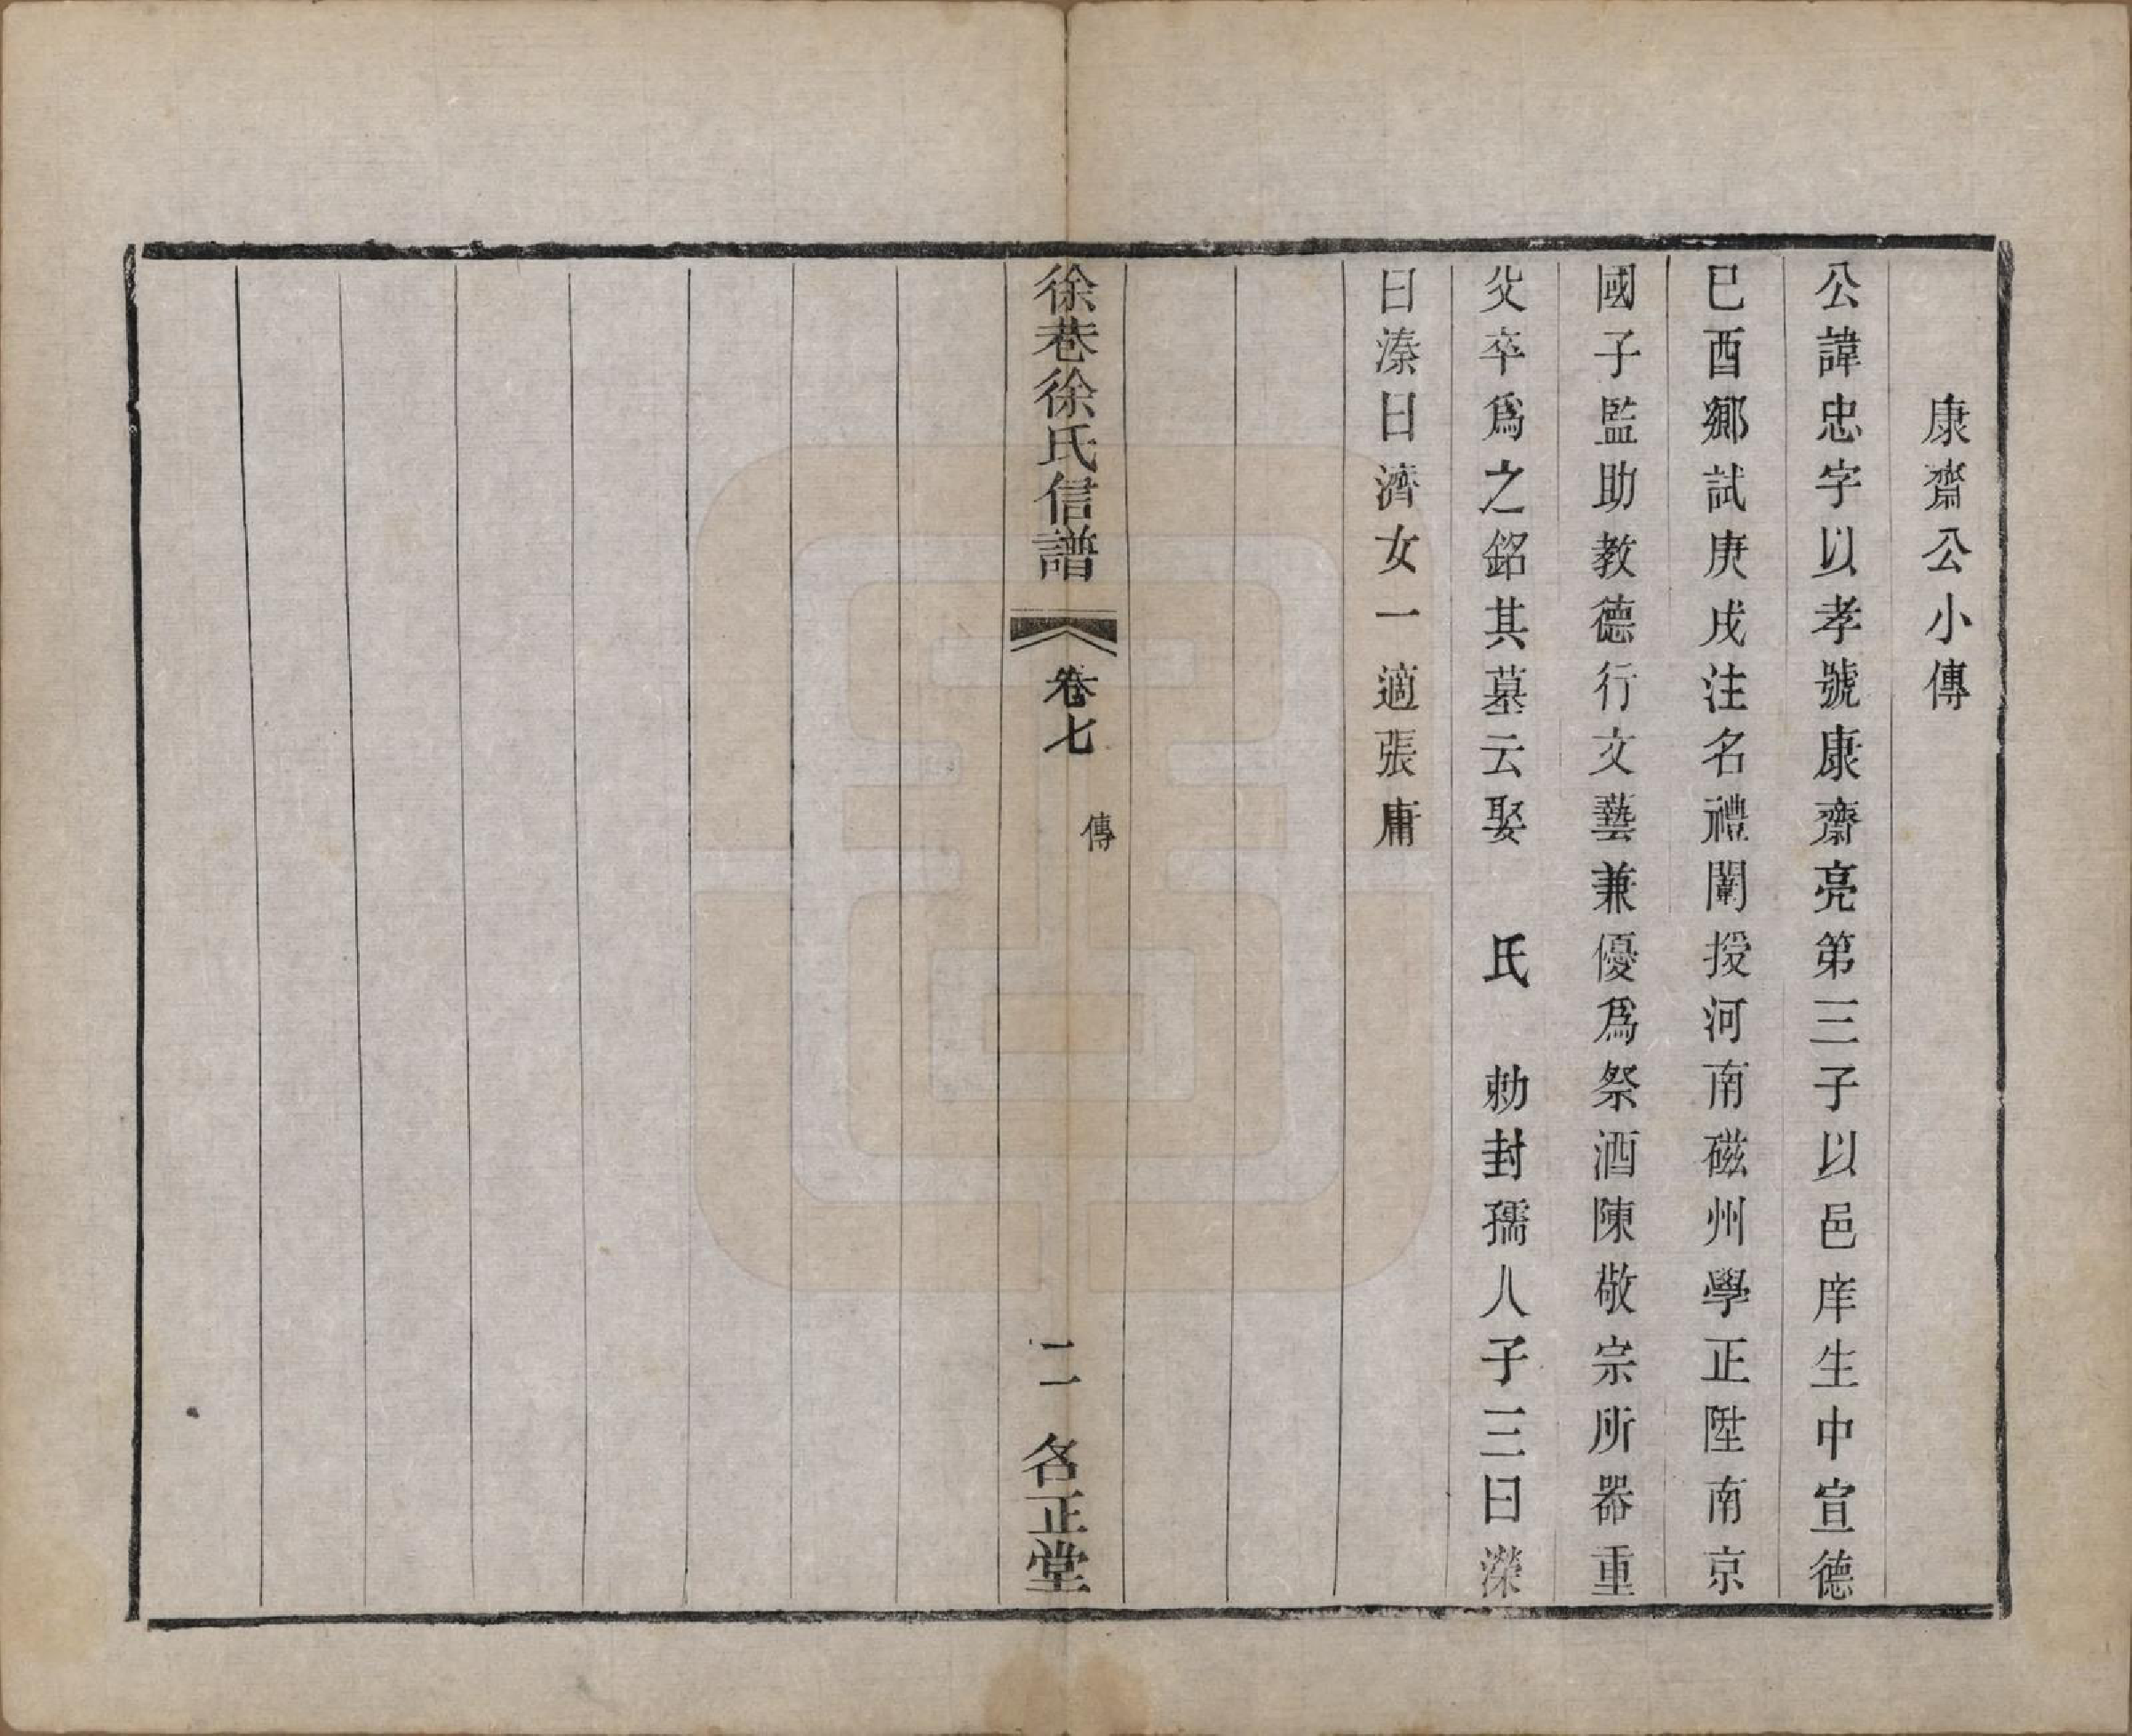 康齋公小傳
公諱忠字以孝號康齋亮第三子以邑庠生中宣德
巳酉鄉試庚戌注名禮闈授河南磁州學正陞南京
國子監助教德行文藝兼優爲祭酒陳敬宗所器重
父卒爲之銘其墓云娶　氏　勅封孺人子三曰濴
曰溱曰濟女一適張庸
徐巷徐氏信譜
卷七
傳
二
名正堂